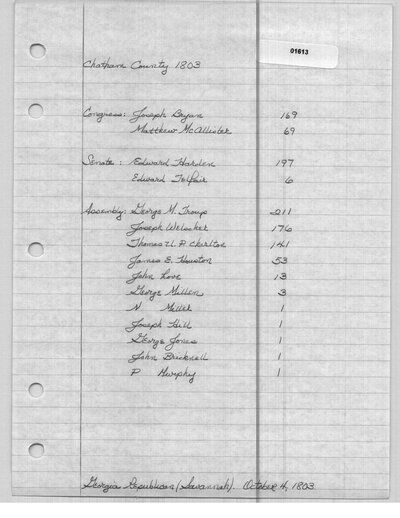 01613
Chatham County 1803
Congress: Joseph Bryan 169
Matthew McAllister 69
Senate: Edward Harden 197
Edward Telfair 6
Assembly: George M. Troup 211
Joseph Welscher 176
Thomas U. P. Charlton 141
James E. Houston 53
John Love 13
George Millen 3
N Miller 1
Joseph Hill 1
George Jones 1
John Bricknell 1
P Murphy 1
Georgia Republican (Savannah). October 4, 1803.